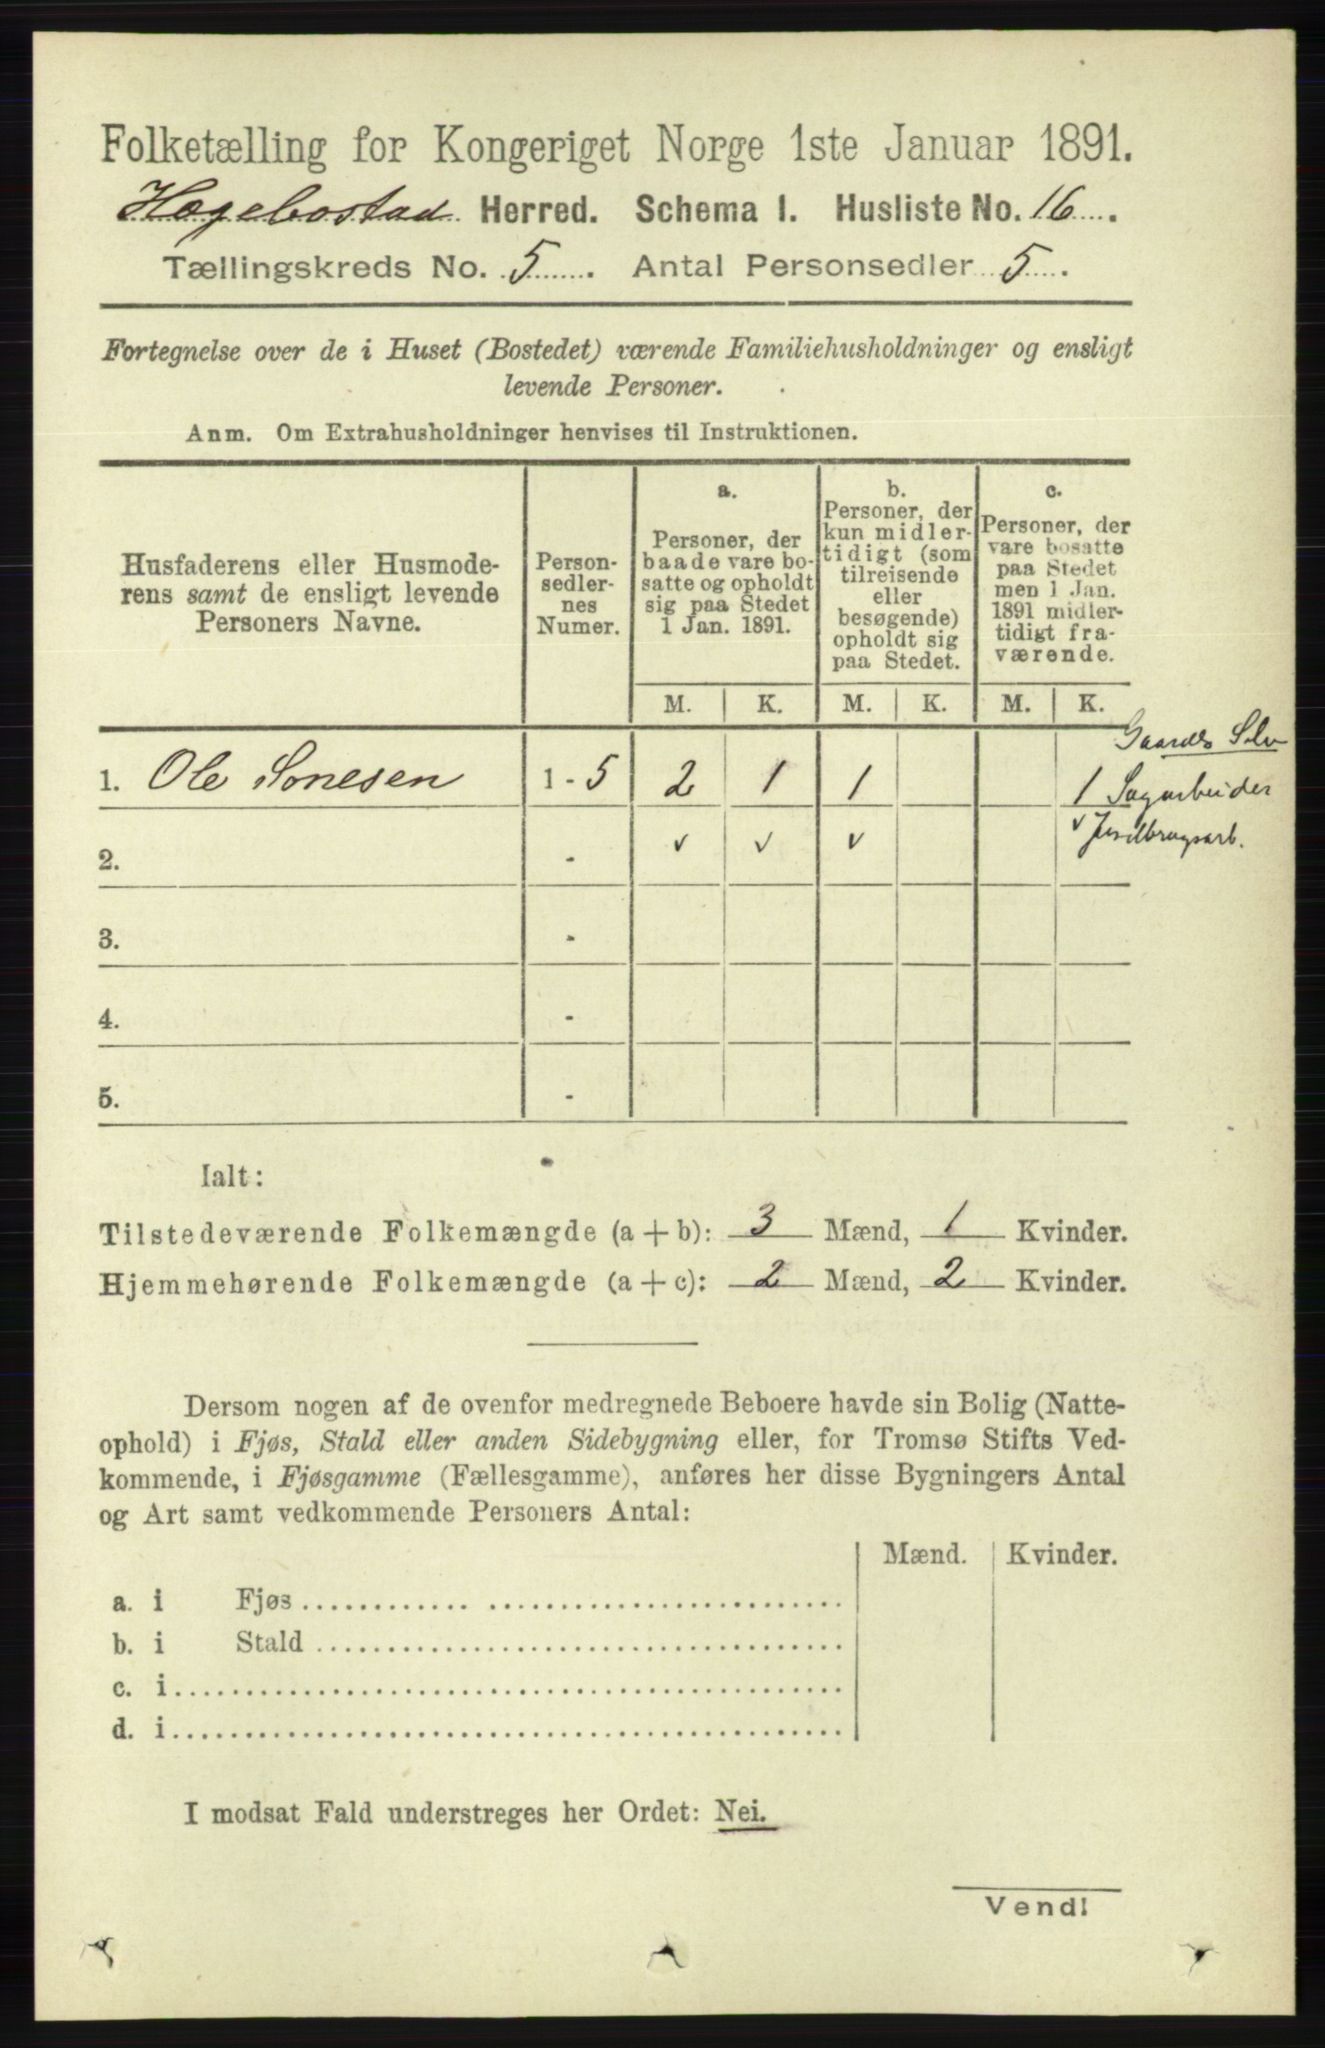 Folketælling for Kongeriget Norge 1ste Januar 1891.
Hægebostad Herred. Schema I. Husliste No. 16.
Tællingskreds No. 5. Antal Personsedler 5.
Fortegnelse over de i Huset (Bostedet) værende Familiehusholdninger og ensligt
levende Personer.
Anm. Om Extrahusholdninger henvises til Instruktionen.
Husfaderens eller Husmode-
rens samt de ensligt levende
Personers Navne.
Person-
sedler-
nes
Numer.
a.
Personer, der
baade vare bo-
satte og opholdt
sig paa Stedet
1 Jan. 1891.
b.
Personer, der
kun midler-
tidigt (som
tilreisende
eller
besøgende)
opholdt sig
paa Stedet.
c.
Personer, der
vare bosatte
paa Stedet
men 1 Jan.
1891 midler-
tidigt fra-
værende.
M. K. M. K. M. K.
Gaards
1. Ole Sonesen 1 - 5 2 1 1 1 Sagarbeider
✓ ✓ ✓ ✓ Jordbrugsarb.
2. -
3. -
4. -
5. -
Ialt:
Tilstedeværende Folkemængde (a + b): 3 Mænd, 1 Kvinder.
Hjemmehørende Folkemængde (a + c): 2 Mænd, 2 Kvinder.
Dersom nogen af de ovenfor medregnede Beboere havde sin Bolig (Natte-
ophold) i Fjøs, Stald eller anden Sidebygning eller, for Tromsø Stifts Ved-
kommende, i Fjøsgamme (Fællesgamme), anføres her disse Bygningers Antal
og Art samt vedkommende Personers Antal:
Mænd. Kvinder.
a. i Fjøs
b. i Stald
c. i
d. i
I modsat Fald understreges her Ordet: Nei.
Vend!